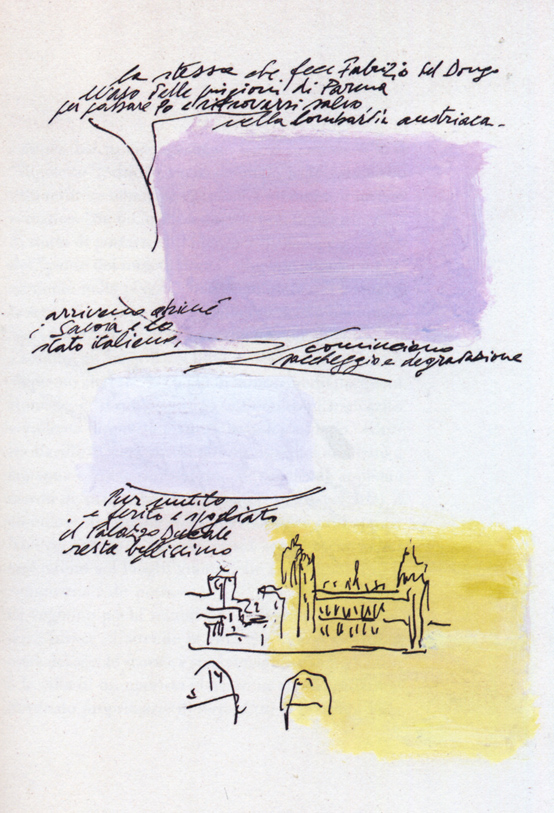 la stessa che fece Fabrizio del Dongo
evaso dalle prigioni di Parma
per passare Po e ritrovarsi salvo
nella Lombardia austriaca.
arrivano ahimé
i Savoia e lo
stato italiano,
cominciano
saccheggio e degradazione
Pur mutilo
e ferito e spogliato
il Palazzo Ducale
resta bellissimo